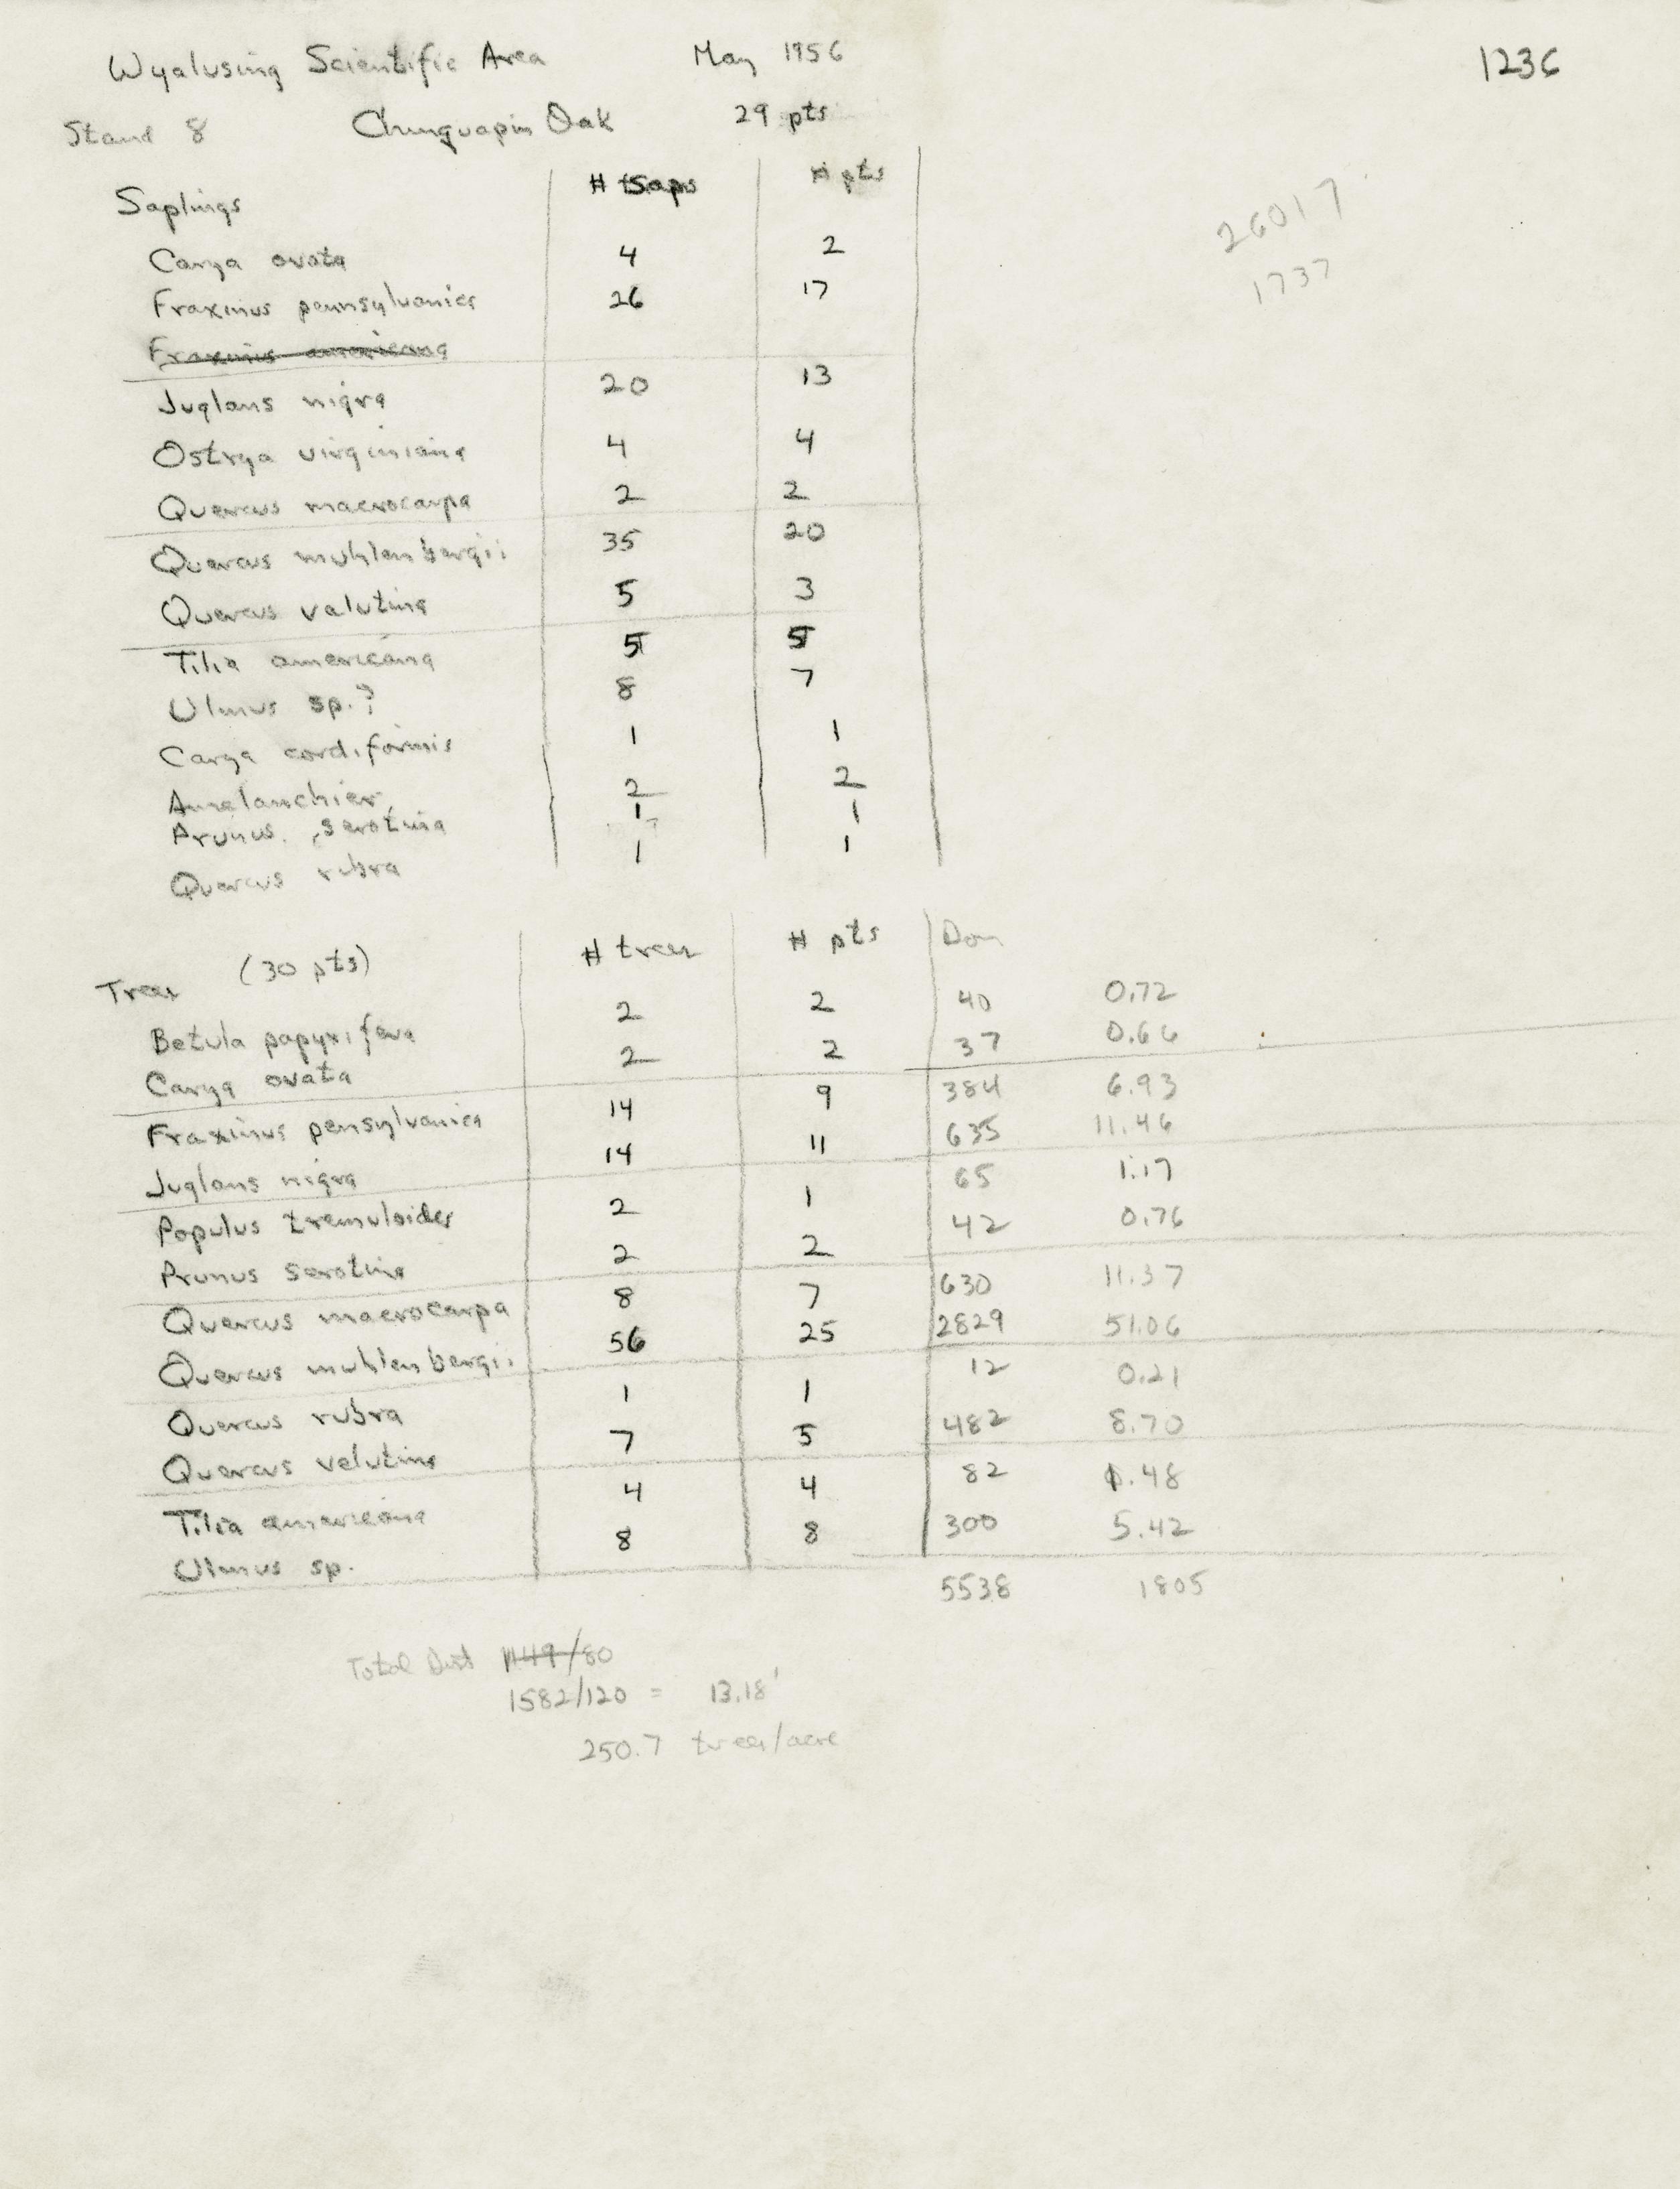 Wyalusing Scientific Area May 1956 1236
Stand 8 Chinquapin Oak 29 pts
Saplings # Saps # pts
26017
1737
Carya ovata 4 2
Fraxinus pennsylvanica 26 17
Fraxinus americana
Juglans nigra 20 13
Ostrya virginiana 4 4
Quercus macrocarpa 2 2
Quercus muhlenbergii 35 20
Quercus valutina 5 3
Tilia americana 5 5
Ulmus sp.? 8 7
Carya cordiformis 1 1
Amelanchier 2 2
Prunus serotina 1 1
Quercus rubra 1 1
Trees (30 pts) # trees # pts Dom
Betula papyrifera 2 2 40 0.72
Carya ovata 2 2 37 0.66
Fraxinus pensylvanica 14 9 384 6.93
Juglans nigra 14 11 635 11.46
Populus tremuloides 2 1 65 1.17
Prunus serotina 2 2 42 0.76
Quercus macrocarpa 8 7 630 11.37
Quercus muhlenbergii 56 25 2829 51.06
Quercus rubra 1 1 12 0.21
Quercus velutina 7 5 482 8.70
Tilia americana 4 4 82 1.48
Ulmus sp. 8 8 300 5.42
5538 1805
Total Dist 1149/80
1582/120 = 13.18'
250.7 trees/acre